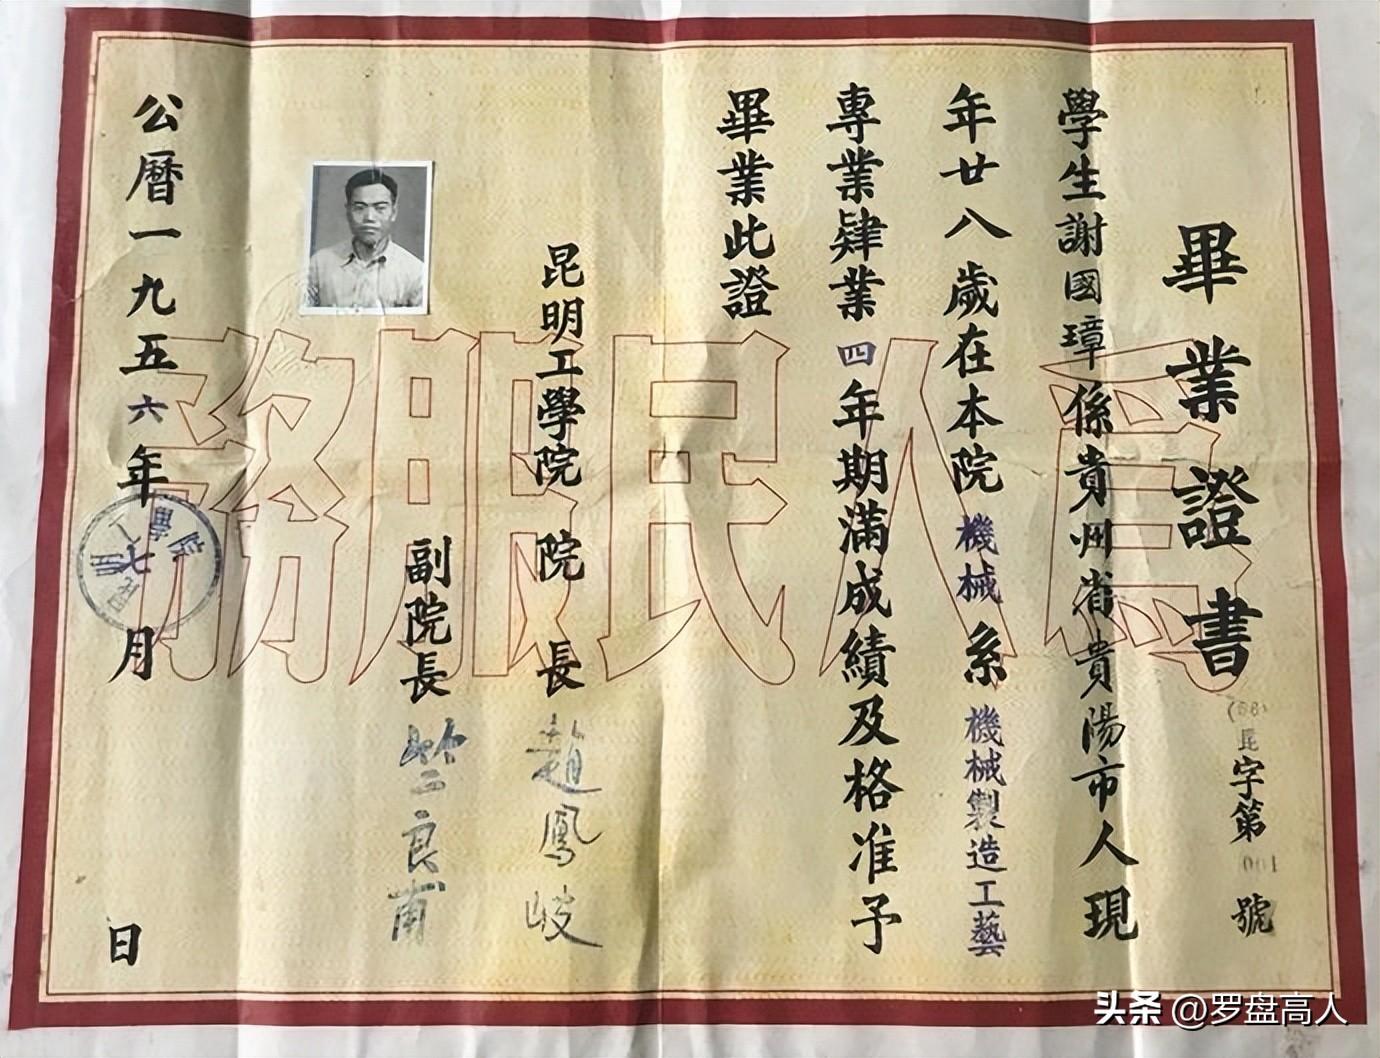 畢業證書
(56)昆字第001號
學生謝國璋係貴州省貴陽市人現
年廿八歲在本院機械系機械製造工藝
專業肄業四年期滿成績及格准予
畢業此證
昆明工學院 院長 趙鳳岐
副院長 良甫
公曆一九五六年七月 日
學院
為人民服務
头条 @罗盘高人